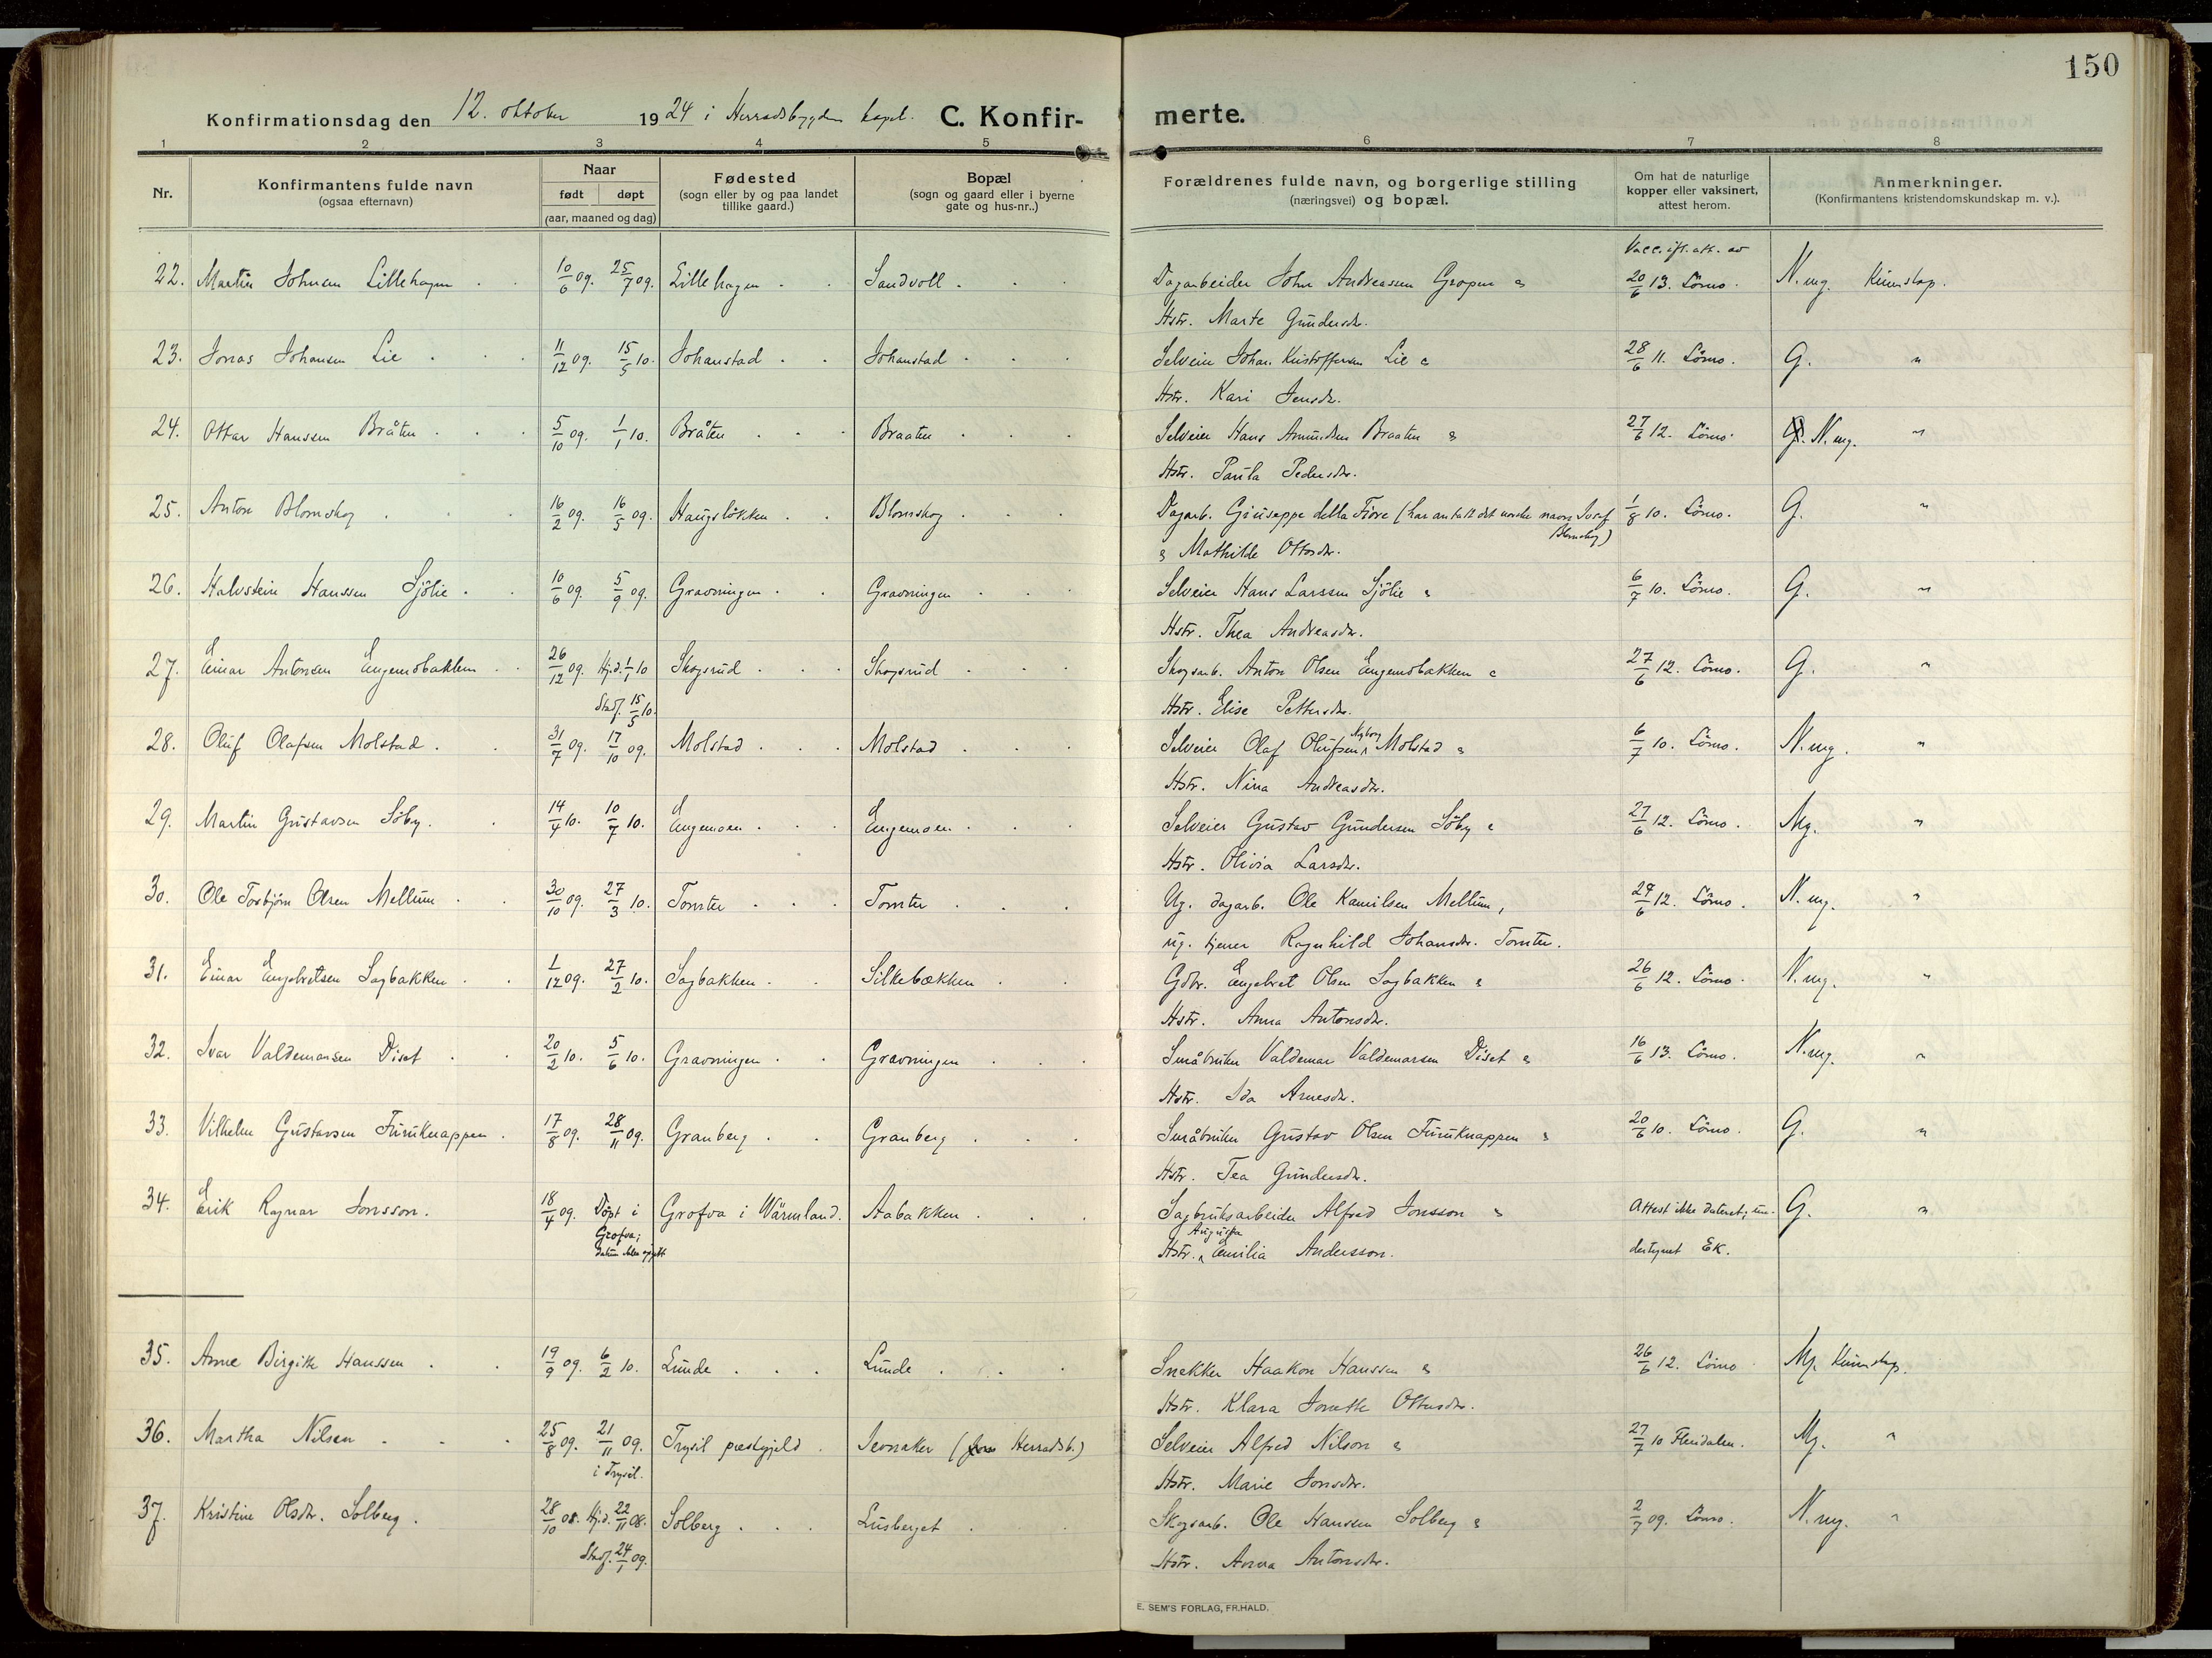 150
Konfirmationsdag den 12. oktober 1924 i Herradsbygden kapel. C. Konfir-merte.
1 2 3 4 5 6 7 8
Nr. Konfirmantens fulde navn (ogsaa efternavn) Naar født døpt (aar, maaned og dag) Fødested (sogn eller by og paa landet tillike gaard.) Bopæl (sogn og gaard eller i byerne gate og hus-nr..) Forældrenes fulde navn, og borgerlige stilling (næringsvei) og bopæl. Om hat de naturlige kopper eller vaksinert, attest herom. Anmerkninger. (Konfirmantens kristendomskundskap m. v.).
Vacc. ifl. att. av
22. Martin Johnsen Lillehagen 10/6 09. 25/7 09. Lillehagen Sandvoll Dagarbeider John Andreassen Gropen & 20/6 13. Lömo. N. mg. Kunnskap.
Hstr. Marte Gundersdr.
23. Jonas Johansen Lie 11/12 09. 15/5 10. Johanstad Johanstad Selveier Johan Kristoffersen Lie & 28/6 11. Lömo. G. "
Hstr. Kari Jensdr.
24. Ottar Hanssen Bråten 5/10 09. 1/1 10. Bråten Braaten Selveier Hans Amundsen Braaten & 27/6 12. Lömo. N. mg. "
Hstr. Paula Pedersdr.
25. Anton Blomskog 16/2 09. 16/5 09. Haugsløkken Blomskog Dagarb. Giuseppe della Fiore (har antatt det norske navn Josef Blomskog) 1/8 10. Lömo. G. "
& Mathilde Ottosdr.
26. Halvstein Hanssen Sjölie 10/6 09. 5/9 09. Gravningen Gravningen Selveier Hans Larssen Sjölie & 6/7 10. Lömo. G. "
Hstr. Thea Andreasdr.
27. Einar Antonsen Engemobakken 26/12 09. Hj.d. 1/1 10 Skogsrud Skogsrud Skogsarb. Anton Olsen Engemobakken & 27/6 12. Lömo. G. "
Stadf. 15/5 10. Hstr. Elise Pettersdr.
28. Oluf Olafsen Molstad 31/7 09. 17/10 09. Molstad Molstad Selveier Olaf Olufsen Nyborg Molstad & 6/7 10. Lömo. N. mg. "
Hstr. Nina Andreasdr.
29. Martin Gustavsen Söby 14/4 10. 10/7 10. Engemoen Engemoen Selveier Gustav Gundersen Söby & 27/6 12. Lömo. Mg. "
Hstr. Olivia Larsdr.
30. Ole Torbjörn Olsen Mellum 30/10 09. 27/3 10. Tomter Tomter Ug. dagarb. Ole Kamilsen Mellum, 24/6 12. Lömo. N. mg. "
ug. tjener Ragnhild Johansdr. Tomter.
31. Einar Engebretsen Sagbakken 1/12 09. 27/2 10. Sagbakken Silkebækken Gdbr. Engebret Olsen Sagbakken & 26/6 12. Lömo. N. mg. "
Hstr. Anna Antonsdr.
32. Ivar Valdemarsen Diset 20/2 10. 5/6 10. Gravningen Gravningen Småbruker Valdemar Valdemarsen Diset & 16/6 13. Lömo. N. mg. "
Hstr. Ida Arnesdr.
33. Vilhelm Gustavsen Furuknappen 17/8 09. 28/11 09. Granberg Granberg Småbruker Gustav Olsen Furuknappen & 20/6 10. Lömo. G. "
Hstr. Tea Gundersdr.
34. Erik Ragnar Jonsson. 18/4 09. Döpt i Grofva; datum ikke opgitt Grofva i Wärmland. Aabakken Sagbruksarbeider Alfred Jonsson & Attest ikke datert; un- G. "
Hstr. Augusta Emilia Andersson. dertegnet EK.
35. Anne Birgitte Hanssen 19/9 09. 6/2 10. Lunde Lunde Snekker Haakon Hanssen & 26/6 12. Lömo Mg. Kunnskap.
Hstr. Klara Jonette Ottersdr.
36. Martha Nilsen 25/8 09. 21/11 09. i Trysil. Trysil prestegjeld Jevnaker (Herradsb.) Selveier Alfred Nilson & 27/7 10 Flendalen. Mg. "
Hstr. Marie Jonsdr.
37. Kristine Olsdr. Solberg 28/10 08. Hj.d. 22/11 08. Solberg Lusberget Skogsarb. Ole Hanssen Solberg & 2/7 09. Lömo. N. mg. "
Stadf. 24/1 09. Hstr. Anna Antonsdr.
E. SEM'S FORLAG, FR.HALD.